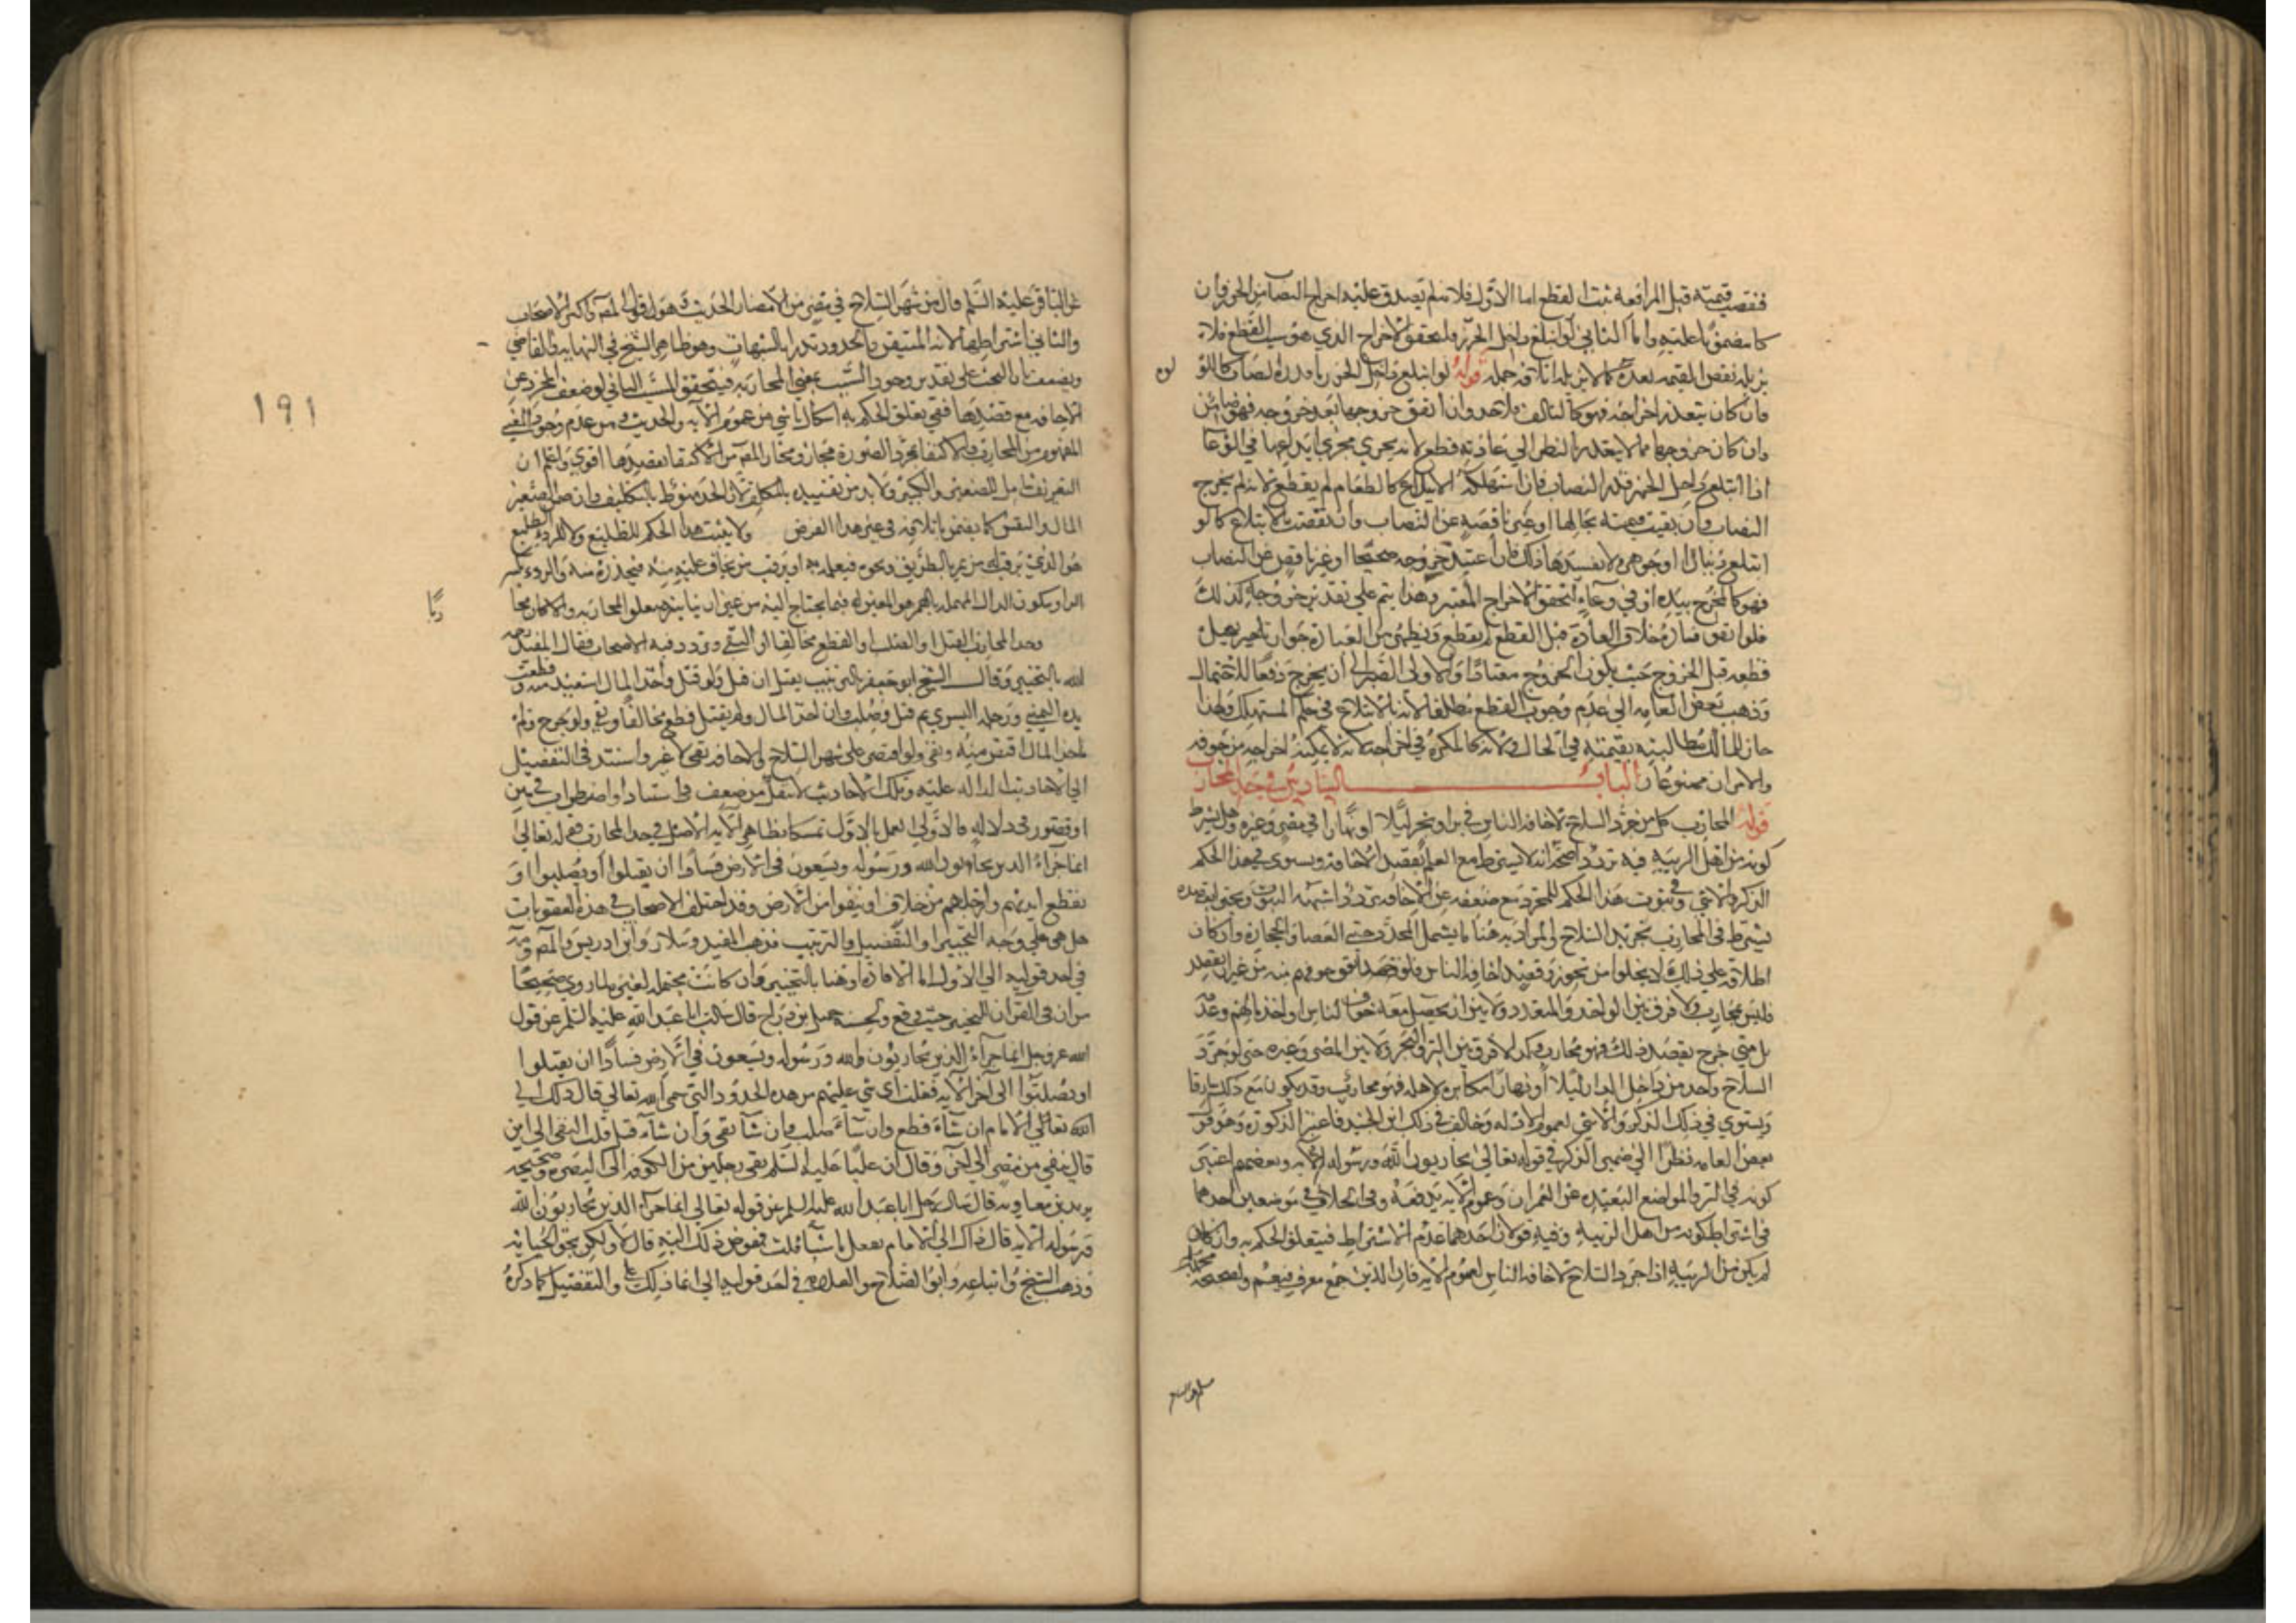 فنقصت قيمته قبل المرافعة ثبت القطع اما الاول فلانه لم يصدق عليه اخراج النصاب من الحرز وان
كان مضمونا عليه واما الثاني لو ابتلع داخل الحرز فلتحقق الاخراج الذي هو سبب القطع فلا
يزيله نقص القيمة بعده كما لا يزيله اتلافه جمله قوله لو ابتلع داخل الحرز ما قدره نصاب كاللؤلؤه
فان كان يتعذر اخراجه فهو كالتالف فلا حد وان اتفق خروجها بعد خروجه فهو ضامن
وان كان خروجها مما لا يتعذر بالنظر الي عادته قطع لانه يجري مجري ايداعها في الوعا
اذا ابتلع داخل الحرز قدر النصاب فان استهلكه الابتلاع كالطعام لم يقطع لانه لم يخرج
النصاب وان بقيت قيمته بحالها او غير ناقصة عن النصاب وان نقصت بالابتلاع كما لو
ابتلع دينارا او جوهرة لا يفسدها ذلك فان اعتيد خروجه صحيحا او غير ناقص عن النصاب
فهو كالمخرج بيده او في وعاء لتحقق الاخراج المعتبر وهذا يتم علي تقدير خروجها كذلك
فلو اتفق فساره خلاف العادة قبل القطع لم يقطع ويظهر من العبارة جواز تعجيل
قطعه قبل الخروج حيث يكون الخروج معتادا والاولي الصبر الي ان يخرج دفعا للاحتمال
وذهب بعض العامه الي عدم وجوب القطع مطلقا لانه بالابتلاع في حكم المستهلك ولهذا
جاز للمالك مطالبته بقيمته في الحال ولانه كالمكره في اخراجه لانه لا يمكنه اخراجه من جوفه
والامران ممنوعان الباب السادس في حد المحارب
قوله المحارب كل من جرد السلاح لاخافه الناس في بر او بحر ليلا او نهارا في مصر وغيره وهل يشترط
كونه من اهل الريبة فيه تردد اصحه انه لا يشترط مع العلم بقصد الاخافة ويستوي في هذا الحكم
الذكر والانثي وفي ثبوت هذا الحكم للمجرد مع ضعفه عن الاخافة تردد اشبهه الثبوت ويجتزي بقصده
يشترط في المحارب تجريد السلاح والمراد به هنا ما يشمل المحدد حتي العصا والحجارة وان كان
اطلاقه علي ذلك لا يخلوا من تجوز وقصد اخافة الناس فلو اتفق خوفهم منه من غير ان يقصده
فليس بمحارب ولا فرق بين الواحد والمتعدد ولا بين ان يحصل معه خوف الناس او اخذ مالهم وعدمه
بل متي خرج بقصد ذلك فهو محارب وكذا لا فرق بين البر والبحر ولا بين المصر وغيره حتي لو جرد
السلاح واحد من داخل الدار ليلا او نهارا مكابرة لاهله فهو محارب وقد يكون مع ذلك سارقا
ويستوي في ذلك الذكر والانثي لعموم الادله وخالف في ذلك ابن الجنيد فاعتبر الذكورة وهو قول
بعض العامه نظرا الي ضمير الذكر في قوله تعالي يحاربون الله ورسوله الآيه وبعضهم اعتبر
كونه في البر والمواضع البعيده عن العمران وعموم الآيه يدفعه وفي الخلاف في موضعين احدهما
في اشتراط كونه من اهل الريبة وفيه قولان احدهما عدم الاشتراط فيتعلق الحكم به وان كان
لم يكن من الريبة اذا جرد السلاح لاخافة الناس لعموم الآيه فان الذين جمع معرف فيعم ولصحيحة محمد بن مسلم
عن الباقر عليه السلم قال من شهر السلاح في مصر من الامصار الحديث هو قول المصه كاكثر الاصحاب
والثاني اشتراطها لانه المتيقن والحدود تدرا بالشبهات وهو ظاهر الشيخ في النهايه والقاضي
ويضعف بان البحث علي تقدير وجود السبب يعني المحاربة فيتحقق المسبب الثاني لو ضعف المجرد عن
الاخافة مع قصدها ففي تعلق الحكم به اشكال ناشي من عموم الآيه والحديث ومن عدم وجود المعني
المفهوم من المحارب والاكتفا بمجرد الصورة مجاز ومختار المصه من الاكتفا بقصدها اقوي واعلم ان
التعريف شامل للصغير والكبير ولا بد من تقييده بالمكلف لان الحد منوط بالتكليف وان ضمن الصغير
المال والنفس كما يضمن باتلافه في غير هذا الفرض ولا يثبت هذا الحكم للطليع ولا للردء الطليع
هو الذي يرقب له من يمر بالطريق ونحوه فيعلمه به او يرقب من يخاف عليه منه فيحذره منه والردء بكسر
الراء وسكون الدال المهملة بالهمز هو المعين له فيما يحتاج اليه من غير ان يباشر متعلق المحاربه والا كان محاربا
وحد المحارب القتل او الصلب او القطع مخالفا او النفي وتردد فيه الاصحاب فقال المفيد رحمه
الله بالتخيير وقال الشيخ ابو جعفر بالترتيب يقتل ان قتل ولو قتل واخذ المال استعيد منه وقطعت
يده اليمني ورجله اليسري ثم قتل وصلب وان اخذ المال ولم يقتل قطع مخالفا ونفي ولو جرح ولم
ياخذ المال اقتص منه ونفي ولو اقتصر علي شهر السلاح والاخافه نفي لا غير واستند في التفصيل
الي الاحاديث الداله عليه وتلك الاحاديث لا تنفك من ضعف في اسناد او اضطراب في متن
او قصور في دلاله فالاولي العمل بالاول تمسكا بظاهر الآيه الاصل في حد المحارب قوله تعالي
انما جزاء الذين يحاربون الله ورسوله ويسعون في الارض فسادا ان يقتلوا او يصلبوا او
تقطع ايديهم وارجلهم من خلاف او ينفوا من الارض وقد اختلف الاصحاب في هذه العقوبات
هل هي علي وجه التخيير او التفصيل والترتيب فذهب المفيد وسلار وابن ادريس والمصه وته
في احد قوليه الي الاول اما لافادة او هنا بالتخيير وان كانت محتمله لغيره لما روي صحيحا
من ان او في القرآن للتخيير حيث وقع ولحسنة جميل بن دراج قال سالت ابا عبد الله عليه السلم عن قول
الله عز وجل انما جزاء الذين يحاربون الله ورسوله ويسعون في الارض فسادا ان يقتلوا
او يصلبوا الي آخر الآيه فقلت اي شي عليهم من هذه الحدود التي سمي الله تعالي قال ذلك الي
الله تعالي الامام ان شاء قطع وان شاء صلب وان شاء نفي وان شاء قتل قلت النفي الي اين
قال ينفي من مصر الي آخر وقال ان عليا عليه السلم نفي رجلين من الكوفه الي البصره وصحيحه
بريد بن معاويه قال سال رجل ابا عبد الله عليه السلم عن قوله تعالي انما جزاء الذين يحاربون الله
ورسوله الآيه قال ذاك الي الامام يفعل ما شاء قلت فمفوض ذلك اليه قال لا ولكن بحق الجنايه
وذهب الشيخ واتباعه وابو الصلاح والعلامة في احد قوليه الي ان ذلك علي والتفصيل كما ذكره
١٩١